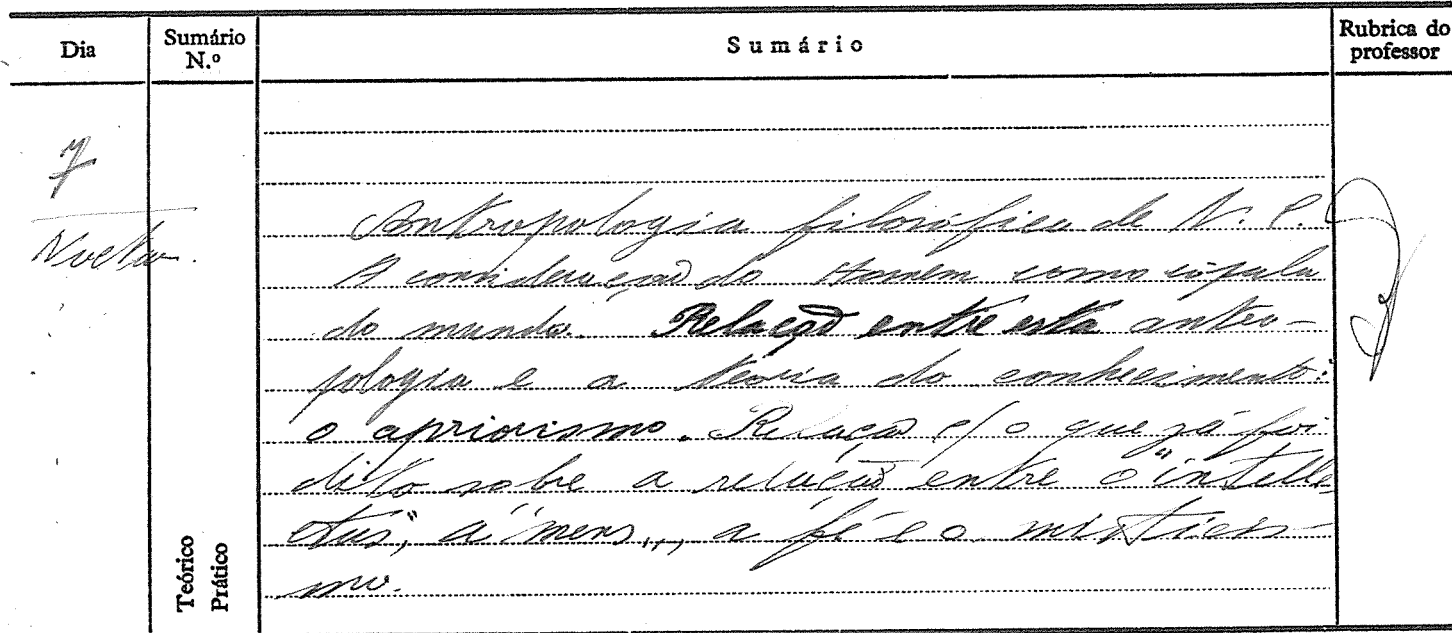 Dia
Sumário N.º
Sumário
Rubrica do professor
7
Antropologia filosófica de N. C.
A consideração do Homem como cópula
do mundo. Relação entre esta antro-
pologia e a teoria do conhecimento:
o apriorismo. Relação c/ o que já foi
dito sobre a relação entre o "intelle-
ctus", a "mens", a fé e o misticis-
mo.
Teórico
Prático